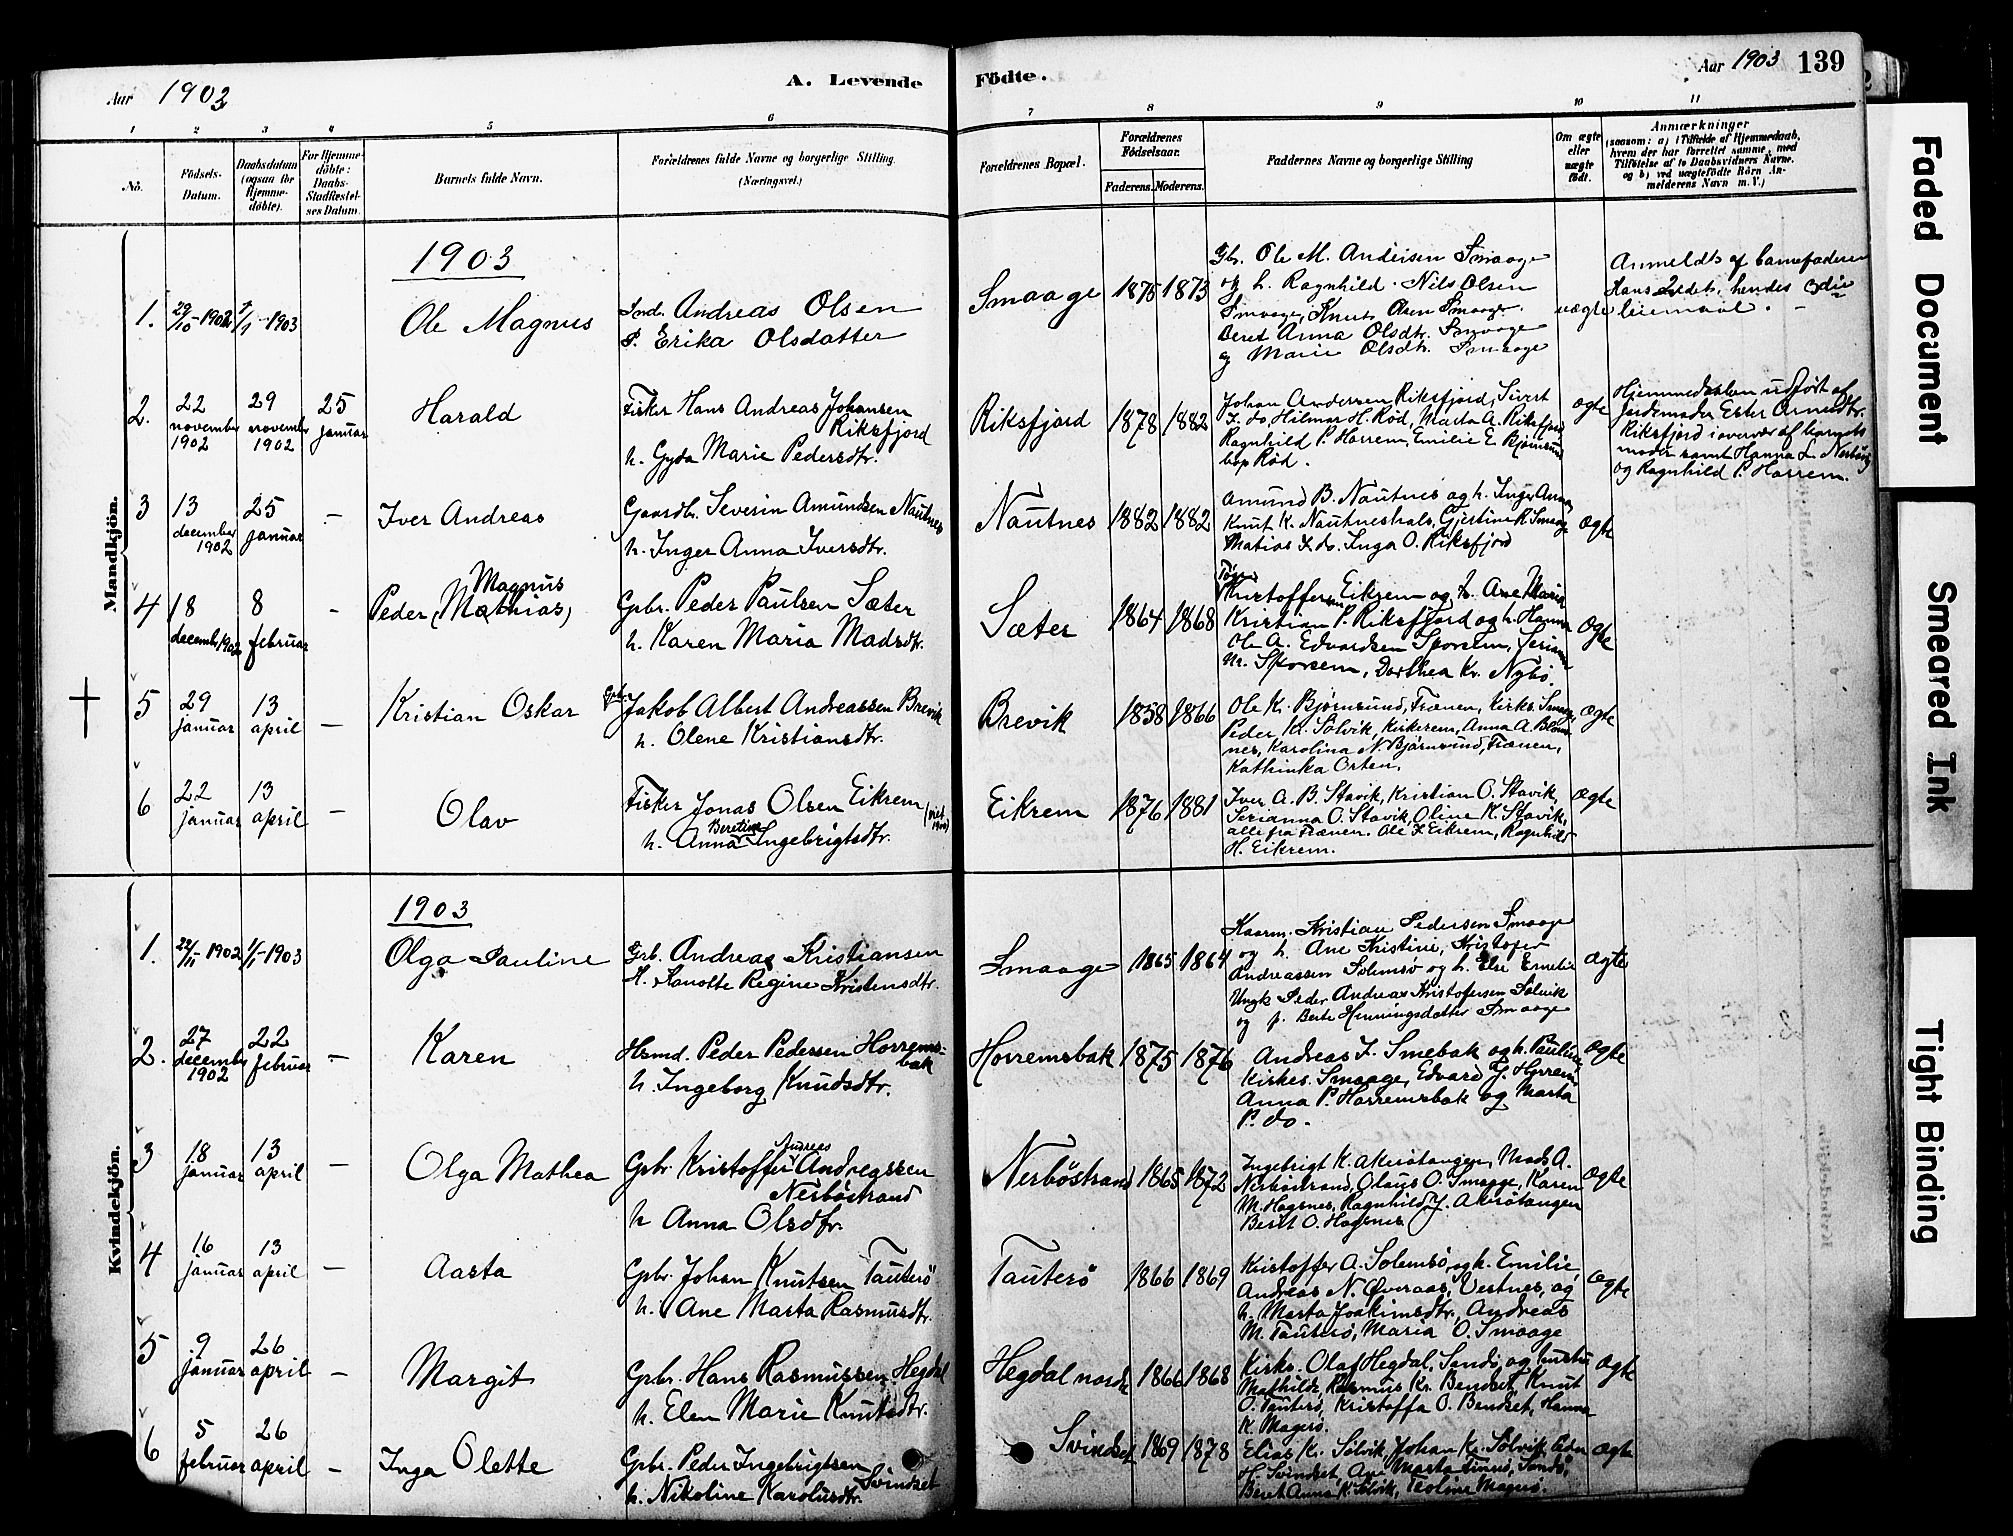 Aar 1903
A. Levende
1 2 3 4 5 6
No.
Födsels-
Datum.
Daabsdatum
(ogsaa for
Hjemme-
döbte).
For Hjemme-
döbte:
Daabs-
Stadfæstel-
ses Datum.
Barnets fulde Navn.
Forældrenes fulde Navne og borgerlige Stilling.
(Næringsvei.)
Mandkjön.
1903
1. 29/10-1902 1/1-1903 Ole Magnus
Ind. Andreas Olsen
P. Erika Olsdatter
2. 22 november 1902 29 november 1902 25 januar Harald
Fisker Hans Andreas Johansen
Riksfjord
h. Gyda Marie Pedersdtr.
3 13 december 1902 25 januar - Iver Andreas
Gaardb. Severin Amundsen Nautnes
h. Inger Anna Iversdtr.
4 18 decemb. 1902 8 februar - Peder (Mathias) Magnus
Gpbr. Peder Paulsen Sæter
h. Karen Maria Madsdtr.
5 29 januar 13 april - Kristian Oskar
Gpbr. Jakob Albert Andreassen Brevik
h. Olene Kristiansdtr.
6 22 januar 13 april - Olav
Fisker Jonas Olsen Eikrem
h. Anna Beretine Ingebrigtsdtr.
Kvindekjön.
1903
1. 22/11 1902 1/1-1903 Olga Pauline
Grb. Andreas Kristiansen
H. Lanotte Regine Kristensdtr.
2. 27 december 1902 22 februar - Karen
Hsmd. Peder Pedersen Horrems-
bak
h. Ingeborg Knudsdtr.
3 18 januar 13 april - Olga Mathea
Gpbr. Kristoffer Andreas Andreassen
Nerbøstrand
h Anna Olsdtr.
4 16 januar 13 april - Aasta
Gpbr. Johan Knutsen Tauterø
h. Ane Marta Rasmusdtr.
5 9 januar 26 april - Margit
Gpbr. Hans Rasmussen Hegdal
h. Elen Marie Knutsdtr.
6 5 februar 26 april - Inga Olette
Gpbr. Peder Ingebrigtsen
Svindset
h. Nikoline Karolusdtr.
Födte.
Aar 1903 139
7 8 9 10 11
Forældrenes Bopæl.
Forældrenes
Födselsaar.
Faderens. Moderens.
Faddernes Navne og borgerlige Stilling
Om ægte
eller
uægte
födt.
Anmærkninger
(saasom: a) i Tilfælde af Hjemmedaab,
hvem der har forrettet samme, med
Tilföielse af to Daabsvidners Navne.
og b) ved uægtefödte Börn An-
melderens Navn m. V.)
Smaage 1875 1873
Gbr. Ole M. Andersen Smaage
og h. Ragnhild. Nils Olsen
Smaage, Knut Olsen Smaage
Beret Anna Olsdtr. Smaage
og Marie Olsdtr. Smaage
uægte
Anmeldt af barnefaderen
Hans 2det, hendes 3die
leiermaal.
Riksfjord 1878 1882
Johan Andersen Riksfjord, Sivert
J. do, Hilmar H. Rød, Marta A. Riksfjord
Ragnhild P. Harrem, Emilie E. Bjørnsund
bop Rød.
ægte
Hjemmedaaben udført af
Jordemoder Ester Amundtr.
Riksfjord i overvær af barnets
moder samt Hanna L. Nerbø
og Ragnhild P. Harrem.
Nautnes 1882 1882
Amund B. Nautnes og h. Inger Anna,
Knut K. Nautneshals, Gjertine R. Smaage
Matias K. do. Inga O. Riksfjord
ægte
Sæter 1864 1868
Kristoffersen Eikrem og h. Ane Maria
Kristian P. Riksfjord og h. Hanna
Ole A. Edvardsen Sporsem, Serianna
M. Sporsem, Dorthea Kr. Nybø.
ægte
Brevik 1858 1866
Ole K. Bjørnsund, Frænen, Kirks. Smaage,
Peder K. Sølvik, Kirkerem, Anna A. Bloms-
nes, Karolina N Bjørnsund, Frænen,
Kathinka Orten.
ægte
Eikrem 1876 1881
Iver A. B. Stavik, Kristian O. Stavik
Serianna O. Stavik, Oline K. Stavik,
alle fra Frænen. Ole J. Eikrem, Ragnhild
H. Eikrem.
ægte
Smaage 1865 1864
Kaarm. Kristian Pedersen Smaage
og h. Ane Kristine, Kristofer
Andreassen Solemsø og h. Else Emelie
Ungk Peder Andreas Kristofersen Sølvik
og p. Berte Henningsdatter Smaage
ægte
Horremsbak 1875 1876
Andreas J. Smebak og h. Pauline
Kirkes. Smaage, Edvard J. Harrem,
Anna P. Harremsbak og Marta
P. do.
ægte
Nerbøstrand 1865 1872
Ingebrigt K. Akerøtangen, Mads A.
Nerbøstrand, Olaus O. Smaage, Karen
M. Hagsnes, Ragnhild J. Akerøtangen
Berit O. Hagsnes
ægte
Tauterø 1866 1869
Kristoffer A. Solemsø og h. Emilie,
Andreas N. Øveraas, Vestnes, og
h. Marta Joakimsdtr. Andreas
M. Tauterø, Maria O. Smaage
ægte
Hegdal nordr. 1866 1868
Kirks. Olaf Hegdal, Sandø, og hustru
Mathilde, Rasmus Kr. Bendset, Knut
O. Tauterø, Kristoffa O. Bendset, Hanna
K. Magerø.
ægte
Svindset 1869 1878
Elias K. Sølvik, Johan K. Sølvik, Edv.
H. Svindset, Ane Marta Finnø, Sandø,
Beret Anna K. Sølvik, Teoline Magerø.
ægte
Faded Document
Smeared Ink
Tight Binding